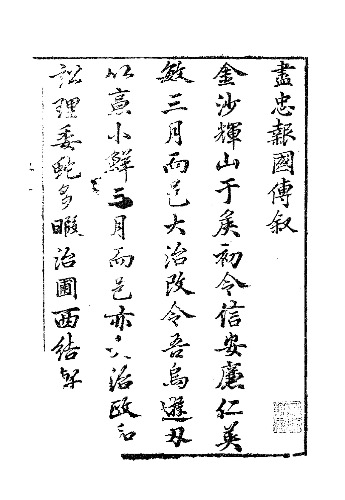 盡忠報國傳叙
金沙輝山于矦初令信安廉仁英
敏三月而邑大治改令吾烏遊刄
以小鮮月而邑亦治政和
訟理委蛇多暇治圃西結